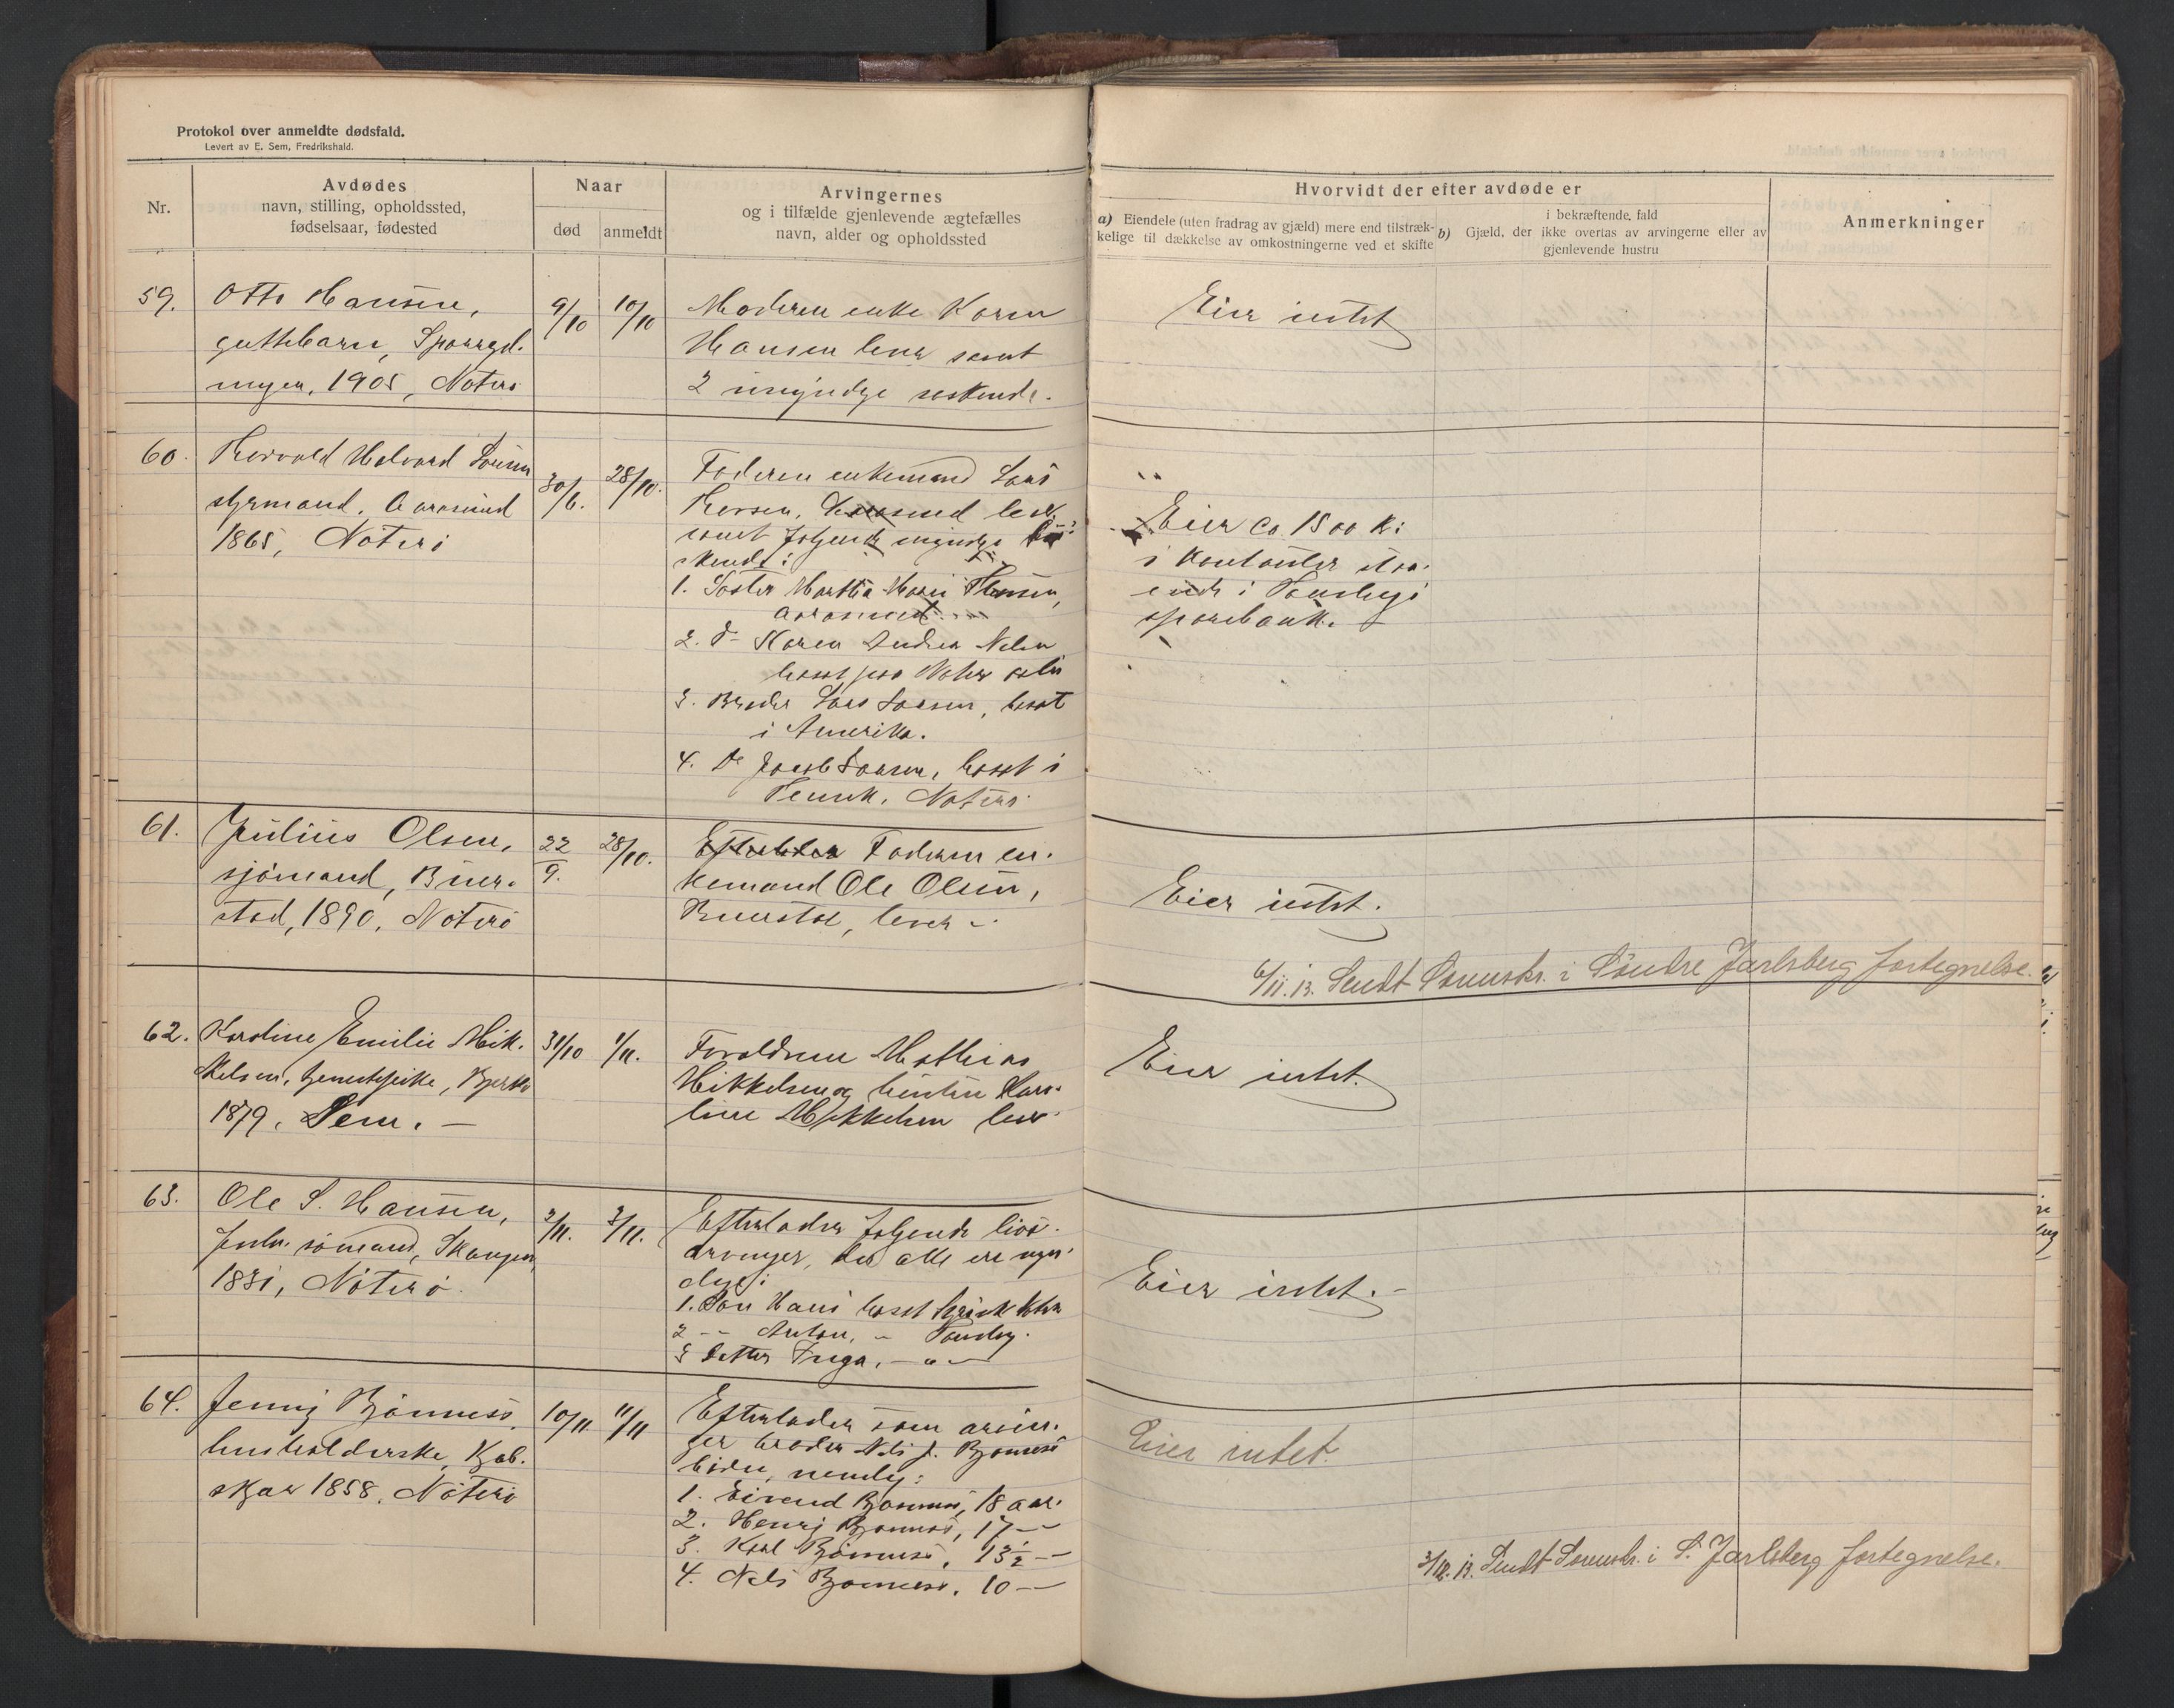 Protokol over anmeldte dødsfald.
Levert av E. Sem, Fredrikshald.
Nr.
Avdødes
navn, stilling, opholdssted,
fødselsaar, fødested
Naar
død
anmeldt
Arvingernes
og i tilfælde gjenlevende ægtefælles
navn, alder og opholdssted
Hvorvidt der efter avdøde er
a) Eiendele (uten fradrag av gjæld) mere end tilstræk-
kelige til dækkelse av omkostningerne ved et skifte
i bekræftende fald
b) Gjæld, der ikke overtas av arvingerne eller av
gjenlevende hustru
Anmerkninger
59.
Otto Hansen,
guttebarn,
1905, Nøterø
9/10
10/10
Moderen enke Karen
Hansen lever samt
2 umyndige søskende.
Eier intet
60.
Thorvald Halvard Larsen
styrmand, Aarøsund
1865, Nøterø
30/6.
28/10.
Faderen enkemand Lars
samt følgende myndige
skende:
1. Søster Martha Marie
Aarøsund
2. do Karen Andrea Nelsen
bosat paa Nøterø
3. Broder Lars Larsen, bosat
i Amerika.
4. Do Jacob Larsen, bosat i
Nøterø.
Eier ca 1500 Kr
i kontanter staa-
ende i Tønsbergs
sparebank.
61.
Julius Olsen,
sjømand, Buer-
stad, 1890, Nøterø
22/9.
28/10.
Efterlader Faderen en-
kemand Ole Olsen,
Buerstad, lever
Eier intet.
6/11.13. Sendt Sorenskr. i Søndre Jarlsberg fortegnelse.
62.
Karoline Emilie Mik-
kelsen, tjenestepike,
1879, Sem.
31/10
1/11.
Forældrene Mathias
Mikkelsen og hustru Karo-
line Mikkelsen lever
Eier intet.
63.
Ole S. Hansen,
sømand, Skaugen,
1831, Nøterø.
2/11.
3/11.
Efterlader følgende livs-
arvinger, der alle ere myn-
dige:
1. Søn Hans bosat
2 -"- Anton, " Tønsberg.
3 Datter
Eier intet.
64.
Jenny Bjønness,
husholderske, Kjøb-
skjær 1858, Nøterø
10/11
11/11
Efterlader som arvin-
ger broder Nils J. Bjønness
børn, nemlig:
1. Eivend Bjønness, 18 aar.
2. Henry Bjønness, 17 -"-
3. Karl Bjønness, 13½ -"-
4. Nils Bjønness, 10 -"-
Eier intet.
3/12.13. Sendt Sorenskr. i S. Jarlsberg fortegnelse.